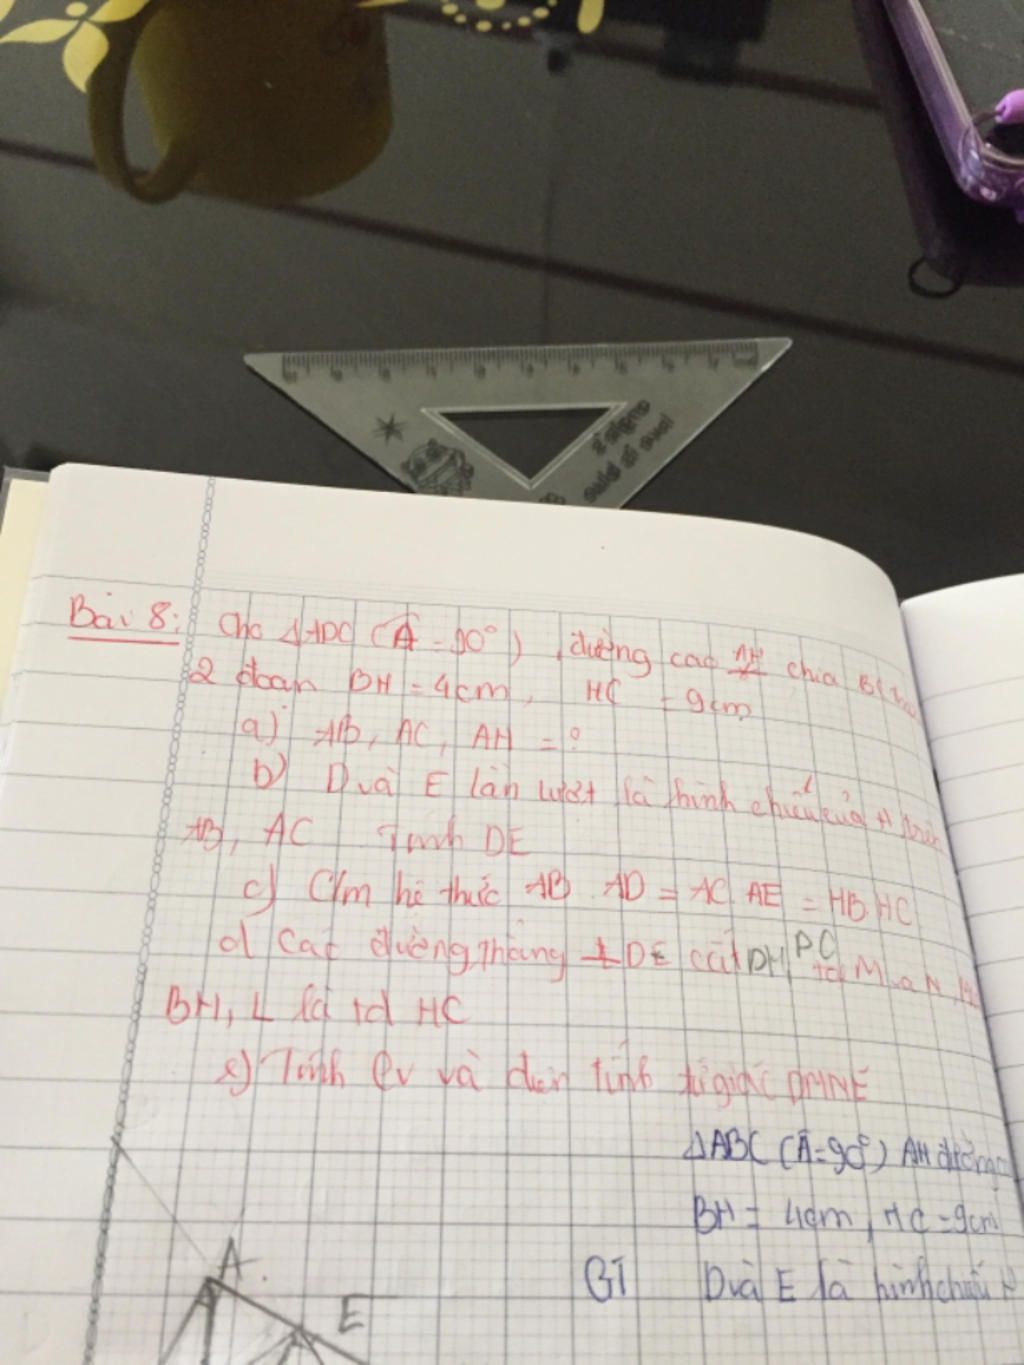 Bài 8: Cho ΔABC (Â = 90°), đường cao AH chia BC
2 đoạn BH = 4cm, HC = 9cm
a) AB, AC, AH = ?
b) D và E lần lượt là hình chiếu của H trên
AB, AC Tính DE
c) C/m hệ thức AB. AD = AC. AE = HB. HC
d) Các đường thẳng ⊥ DE cắt BH, PC tđ M và N, M
BH, L là tđ HC
e) Tính Cv và diện tính tứ giác DMNE
ΔABC (Â=90°) AH đường
BH = 4cm, HC = 9cm
GT D và E là hình chiếu H
A
E